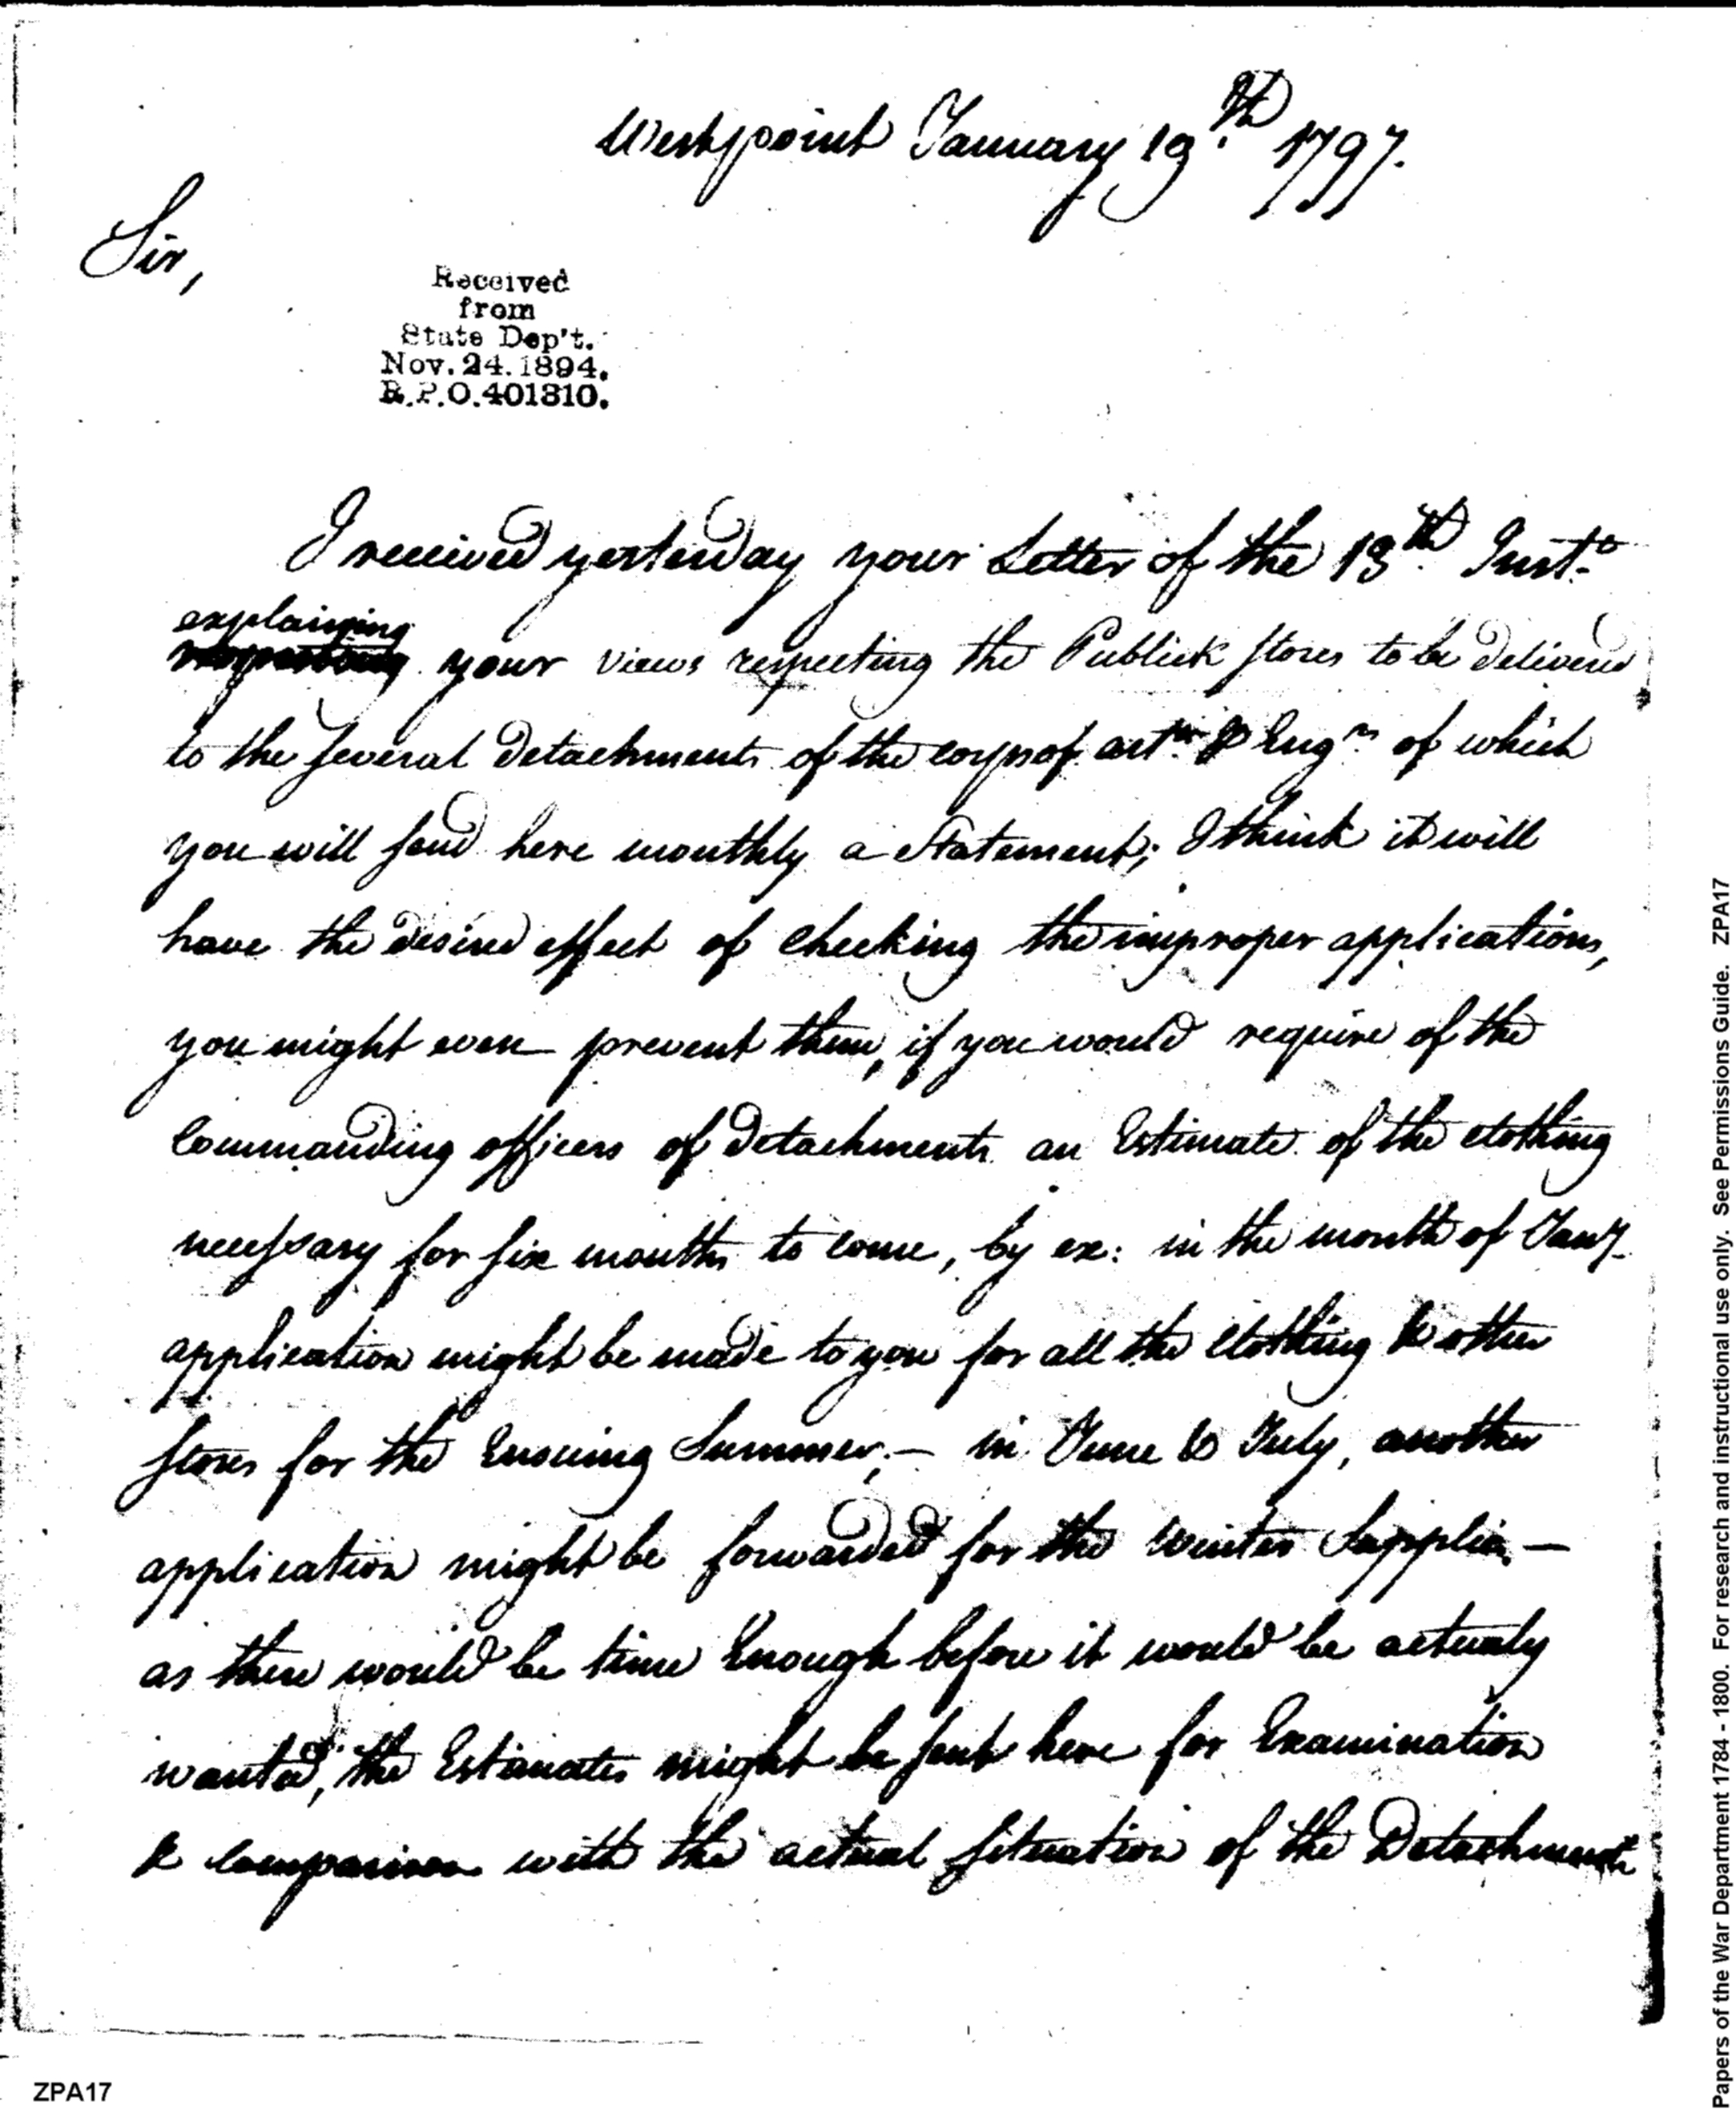 Westpoint January 19.th 1797.
Sir,
Received
from
State Dep't.
Nov. 24. 1894.
R.P.O. 401310.
I received yesterday your Letter of the 13.th Inst.
explaining
your views respecting the Publick stores to be delivered
to the several detachments of the corps of art.rs & Eng.rs of which
you will send here monthly a Statement; I think it will
have the desired effect of checking the improper applications,
you might even prevent them, if you would require of the
Commanding officers of detachments an Estimate of the clothing
necessary for six months to come, by ex: in the month of Jany.
application might be made to you for all the clothing & other
stores for the Ensuing Summer; — in June & July, another
application might be forwarded for the winter Supplies —
as there would be time Enough before it would be actualy
wanted, the Estimates might be sent here for Examination
& Comparison with the actual situation of the Detachments
ZPA17
Papers of the War Department 1784 - 1800. For research and instructional use only. See Permissions Guide. ZPA17